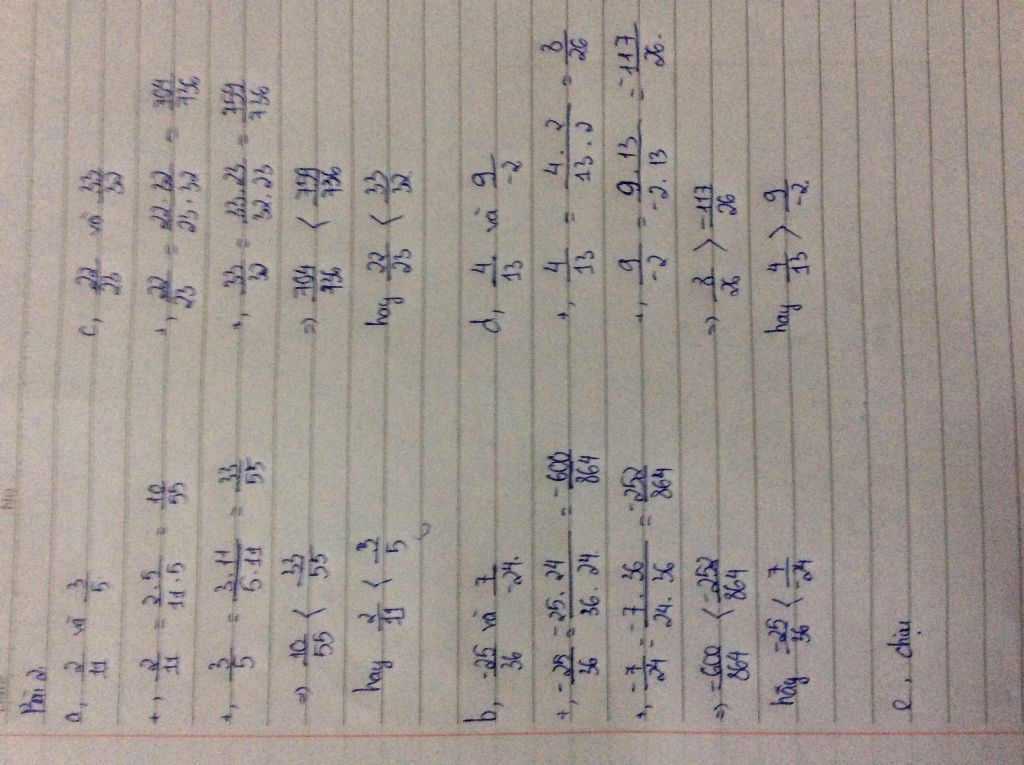 Bài 2.
a, 2/11 và 3/5
+, 2/11 = 2.5/11.5 = 10/55
+, 3/5 = 3.11/5.11 = 33/55
=> 10/55 < 33/55
hay 2/11 < 3/5
b, -25/36 và 7/-24.
+, -25/36 = -25.24/36.24. = -600/864
+, -7/24 = -7.36/24.36 = -252/864
=> -600/864 < -252/864
hay -25/36 < -7/24
e, chịu
c, 22/23 và 33/32
+, 22/23 = 22.32/23.32 = 704/736
+, 33/32 = 33.23/32.23 = 759/736
=> 704/736 < 759/736
hay 22/23 < 33/32
d, 4/13 và 9/-2
+, 4/13 = 4.2/13.2 = 8/26
+, 9/-2 = 9.13/-2.13 = -117/26.
=> 8/26 > -117/26
hay 4/13 > 9/-2